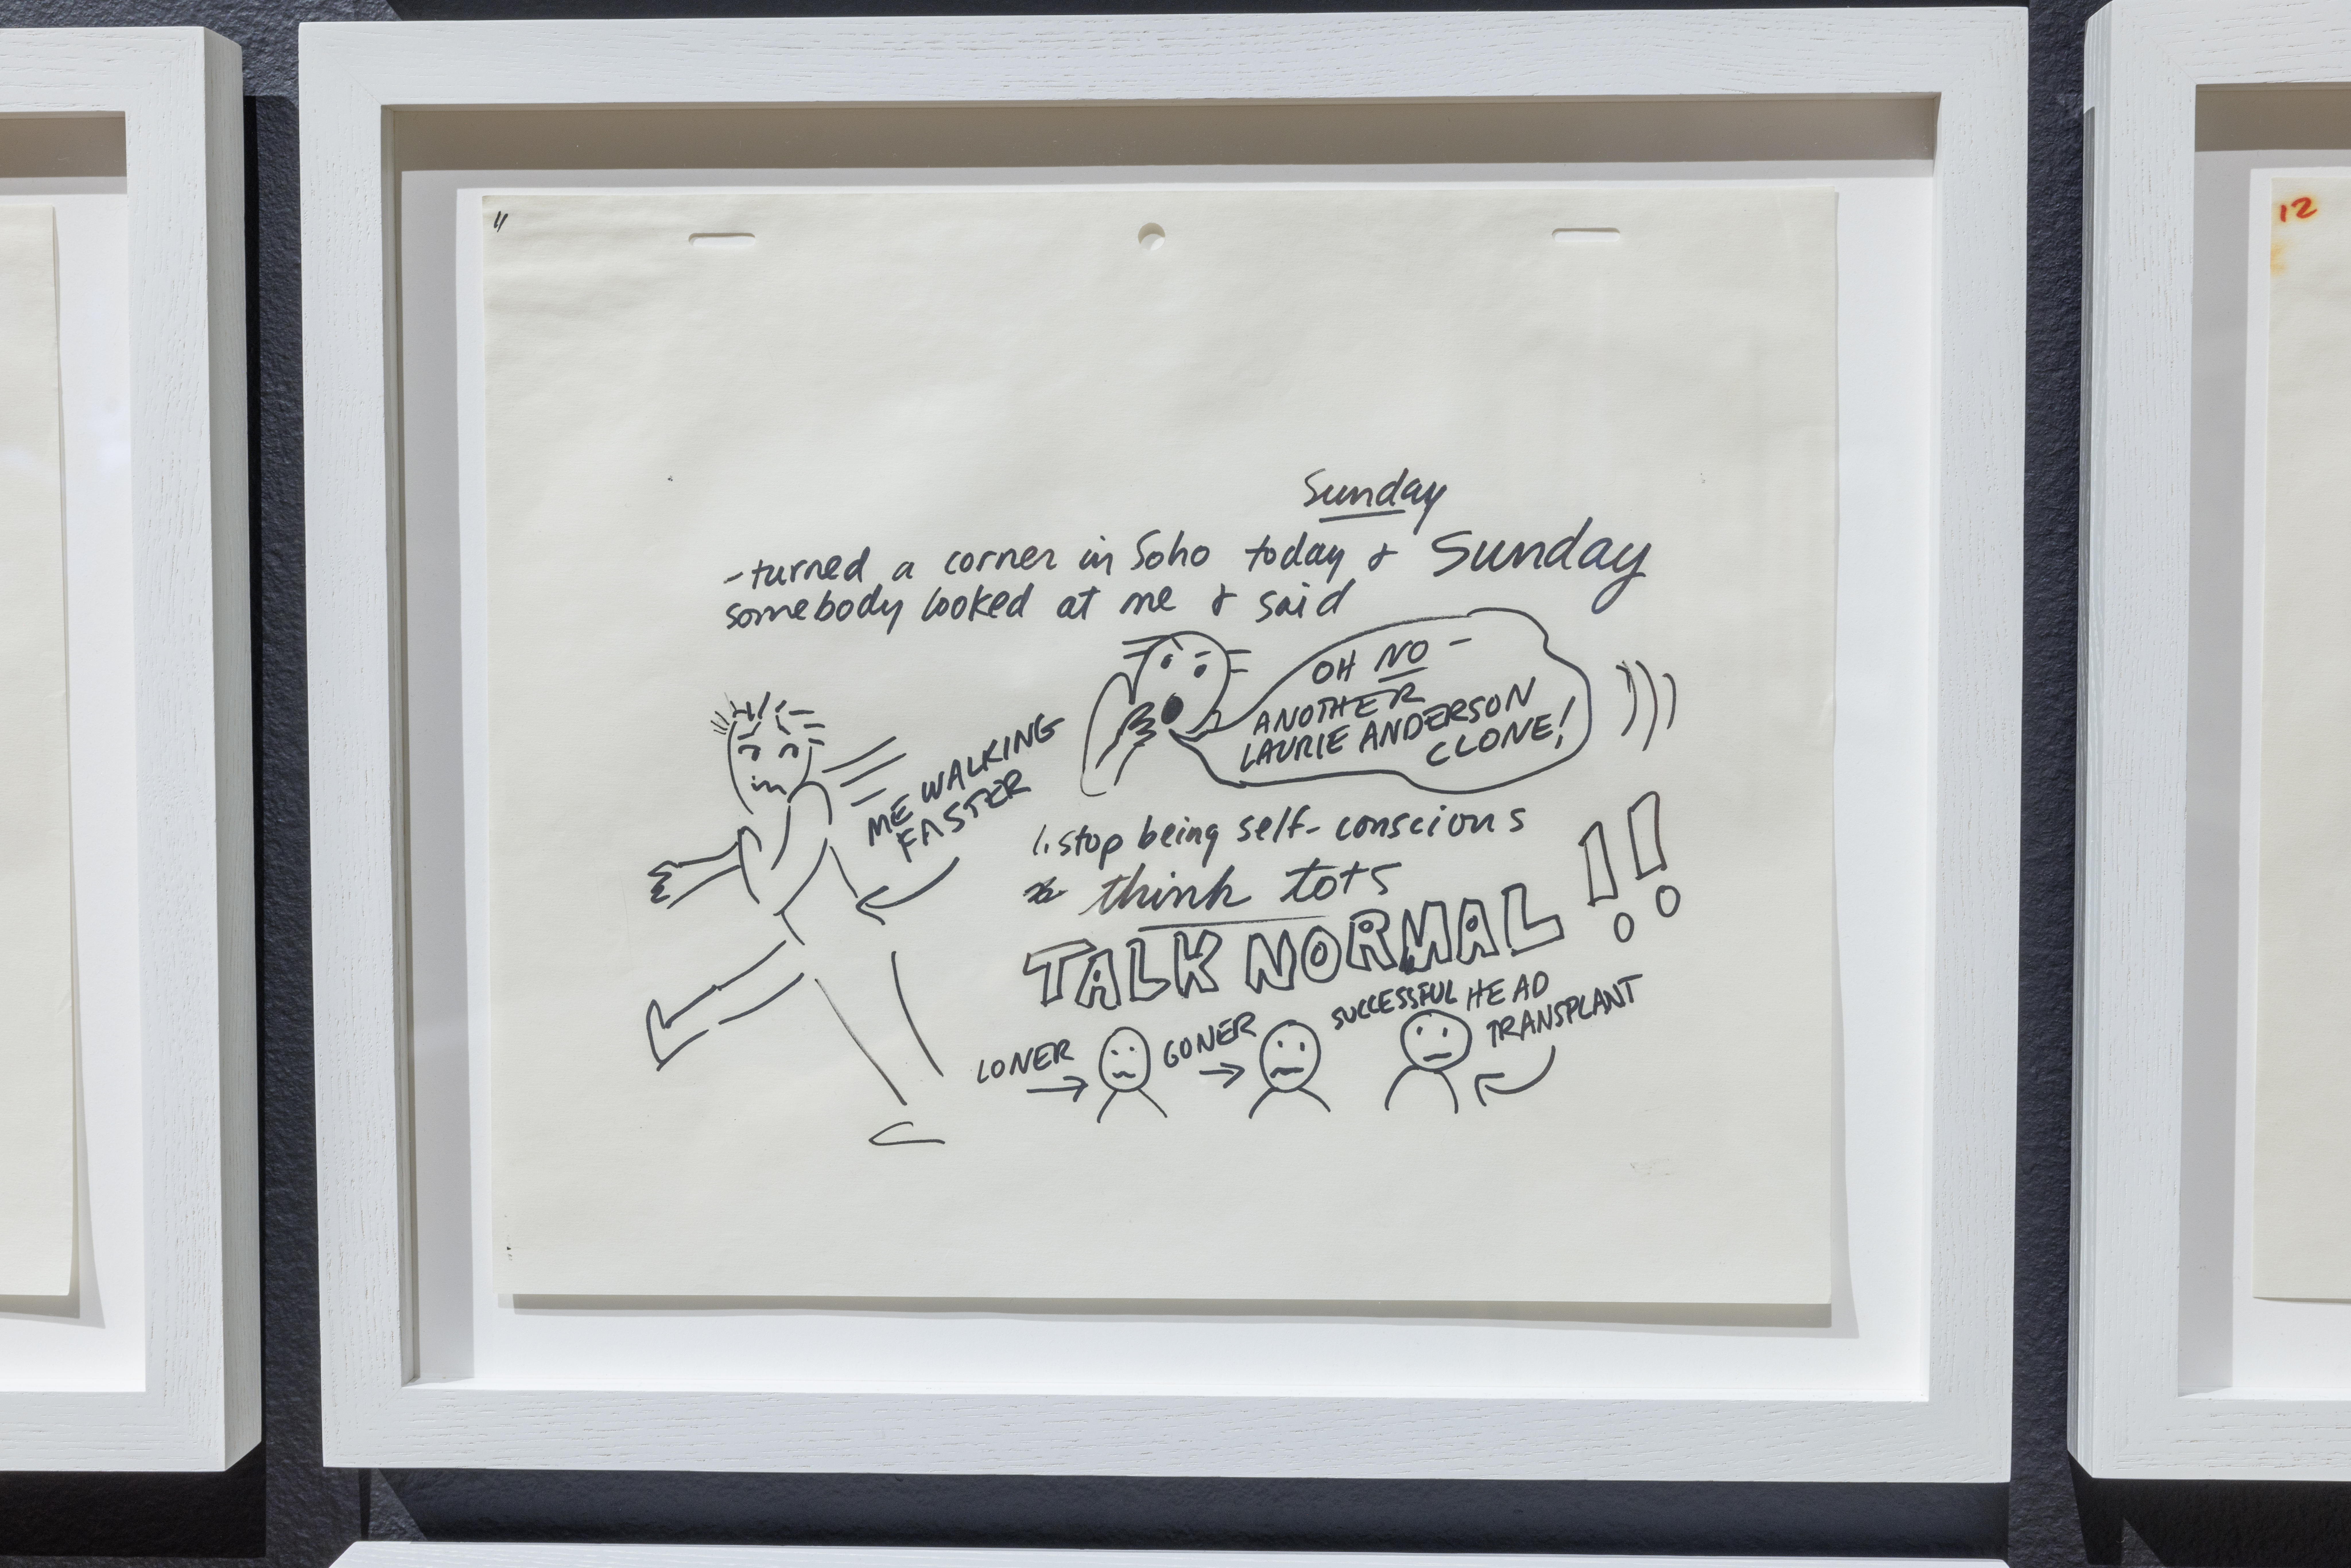 11
12
Sunday
- turned a corner in Soho today & Sunday
somebody looked at me & said
OH NO -
ANOTHER
LAURIE ANDERSON
CLONE!
ME WALKING
FASTER
1. stop being self-conscious
think tots
TALK NORMAL!!
LONER
GONER
SUCCESSFUL HEAD
TRANSPLANT